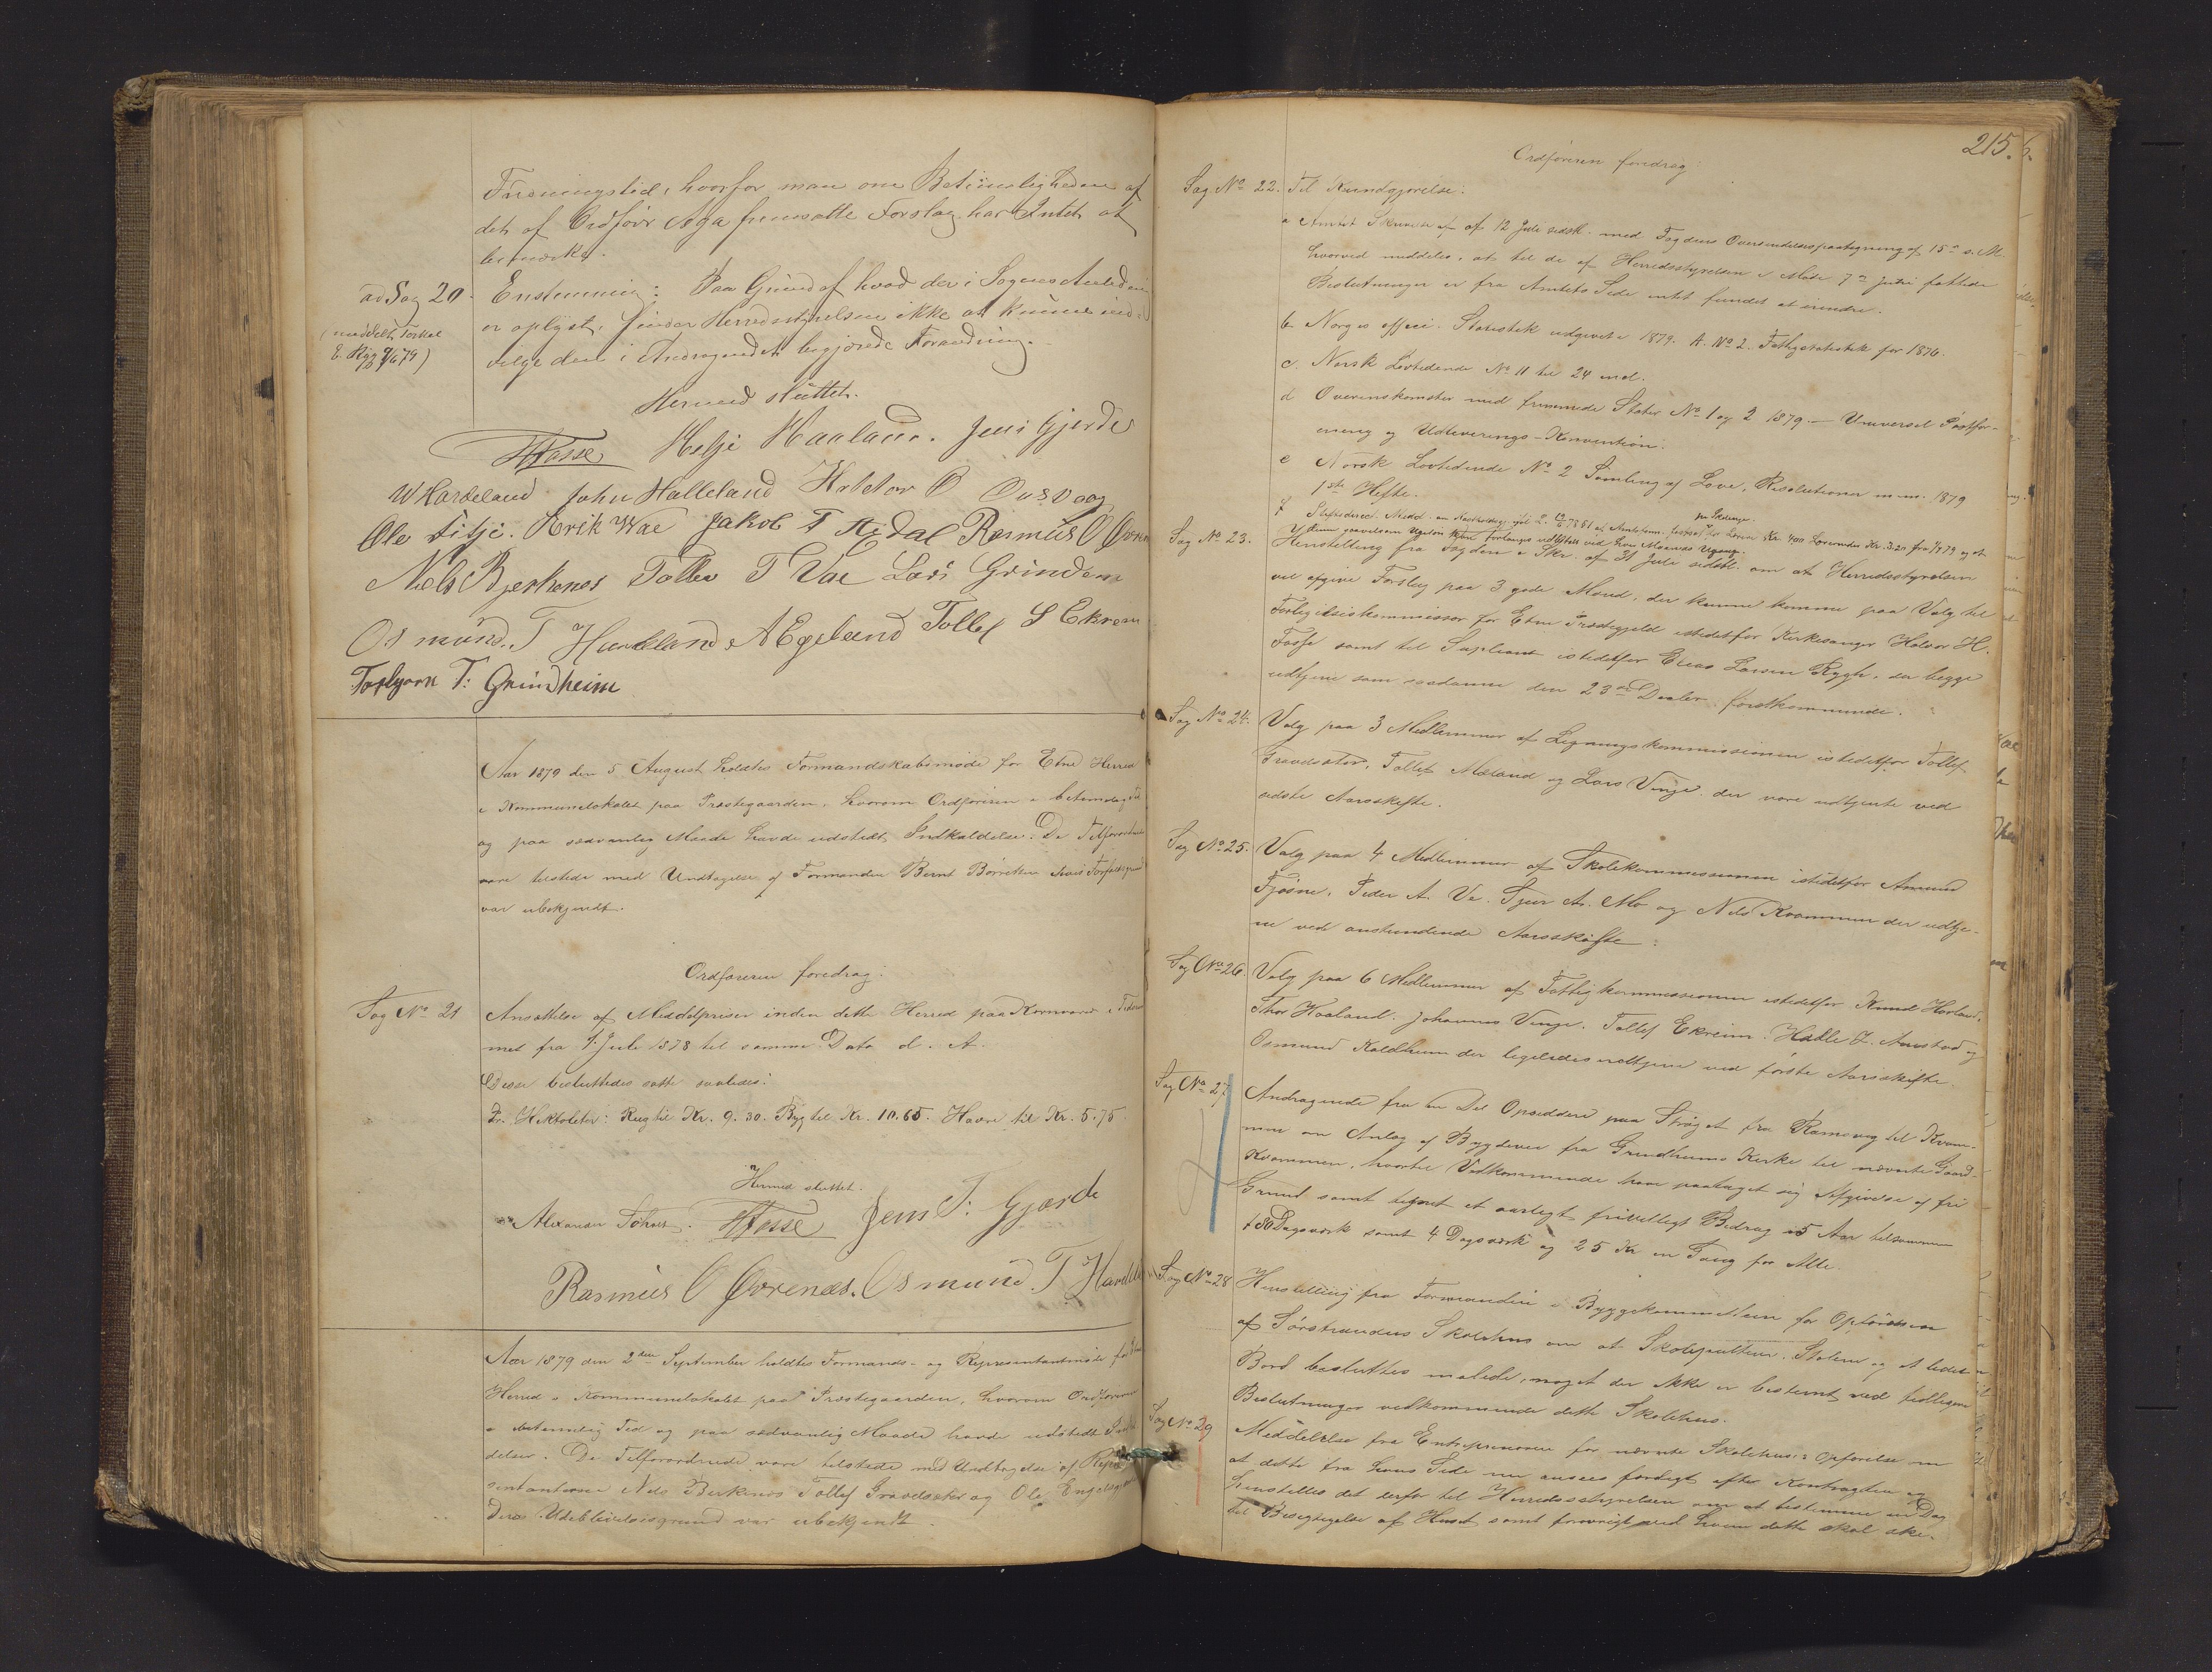 hvorfor man om Betimeligheden af
det af Ordfører Aga fremsatte Forslag har Intet at
bemærke.
ad Sag 20. Enstemmig: Paa Grund af hvad der i Sagens Anledning
er oplyst, finder Herredsstyrelsen ikke at kunne ind-
vilge den i Andragendet begjærede Forandring.
(meddelt Torkel
E. Rygg 79)
Hermed sluttet.
HFasse Helje Haaland. Jens Gjerde
W Hardeland John Halleland
Ole Litje. Erik Wae Jakob T Rasmus O
Niels Bjerkenes Tollev T Vae Lars Grindem
Osmund. T Havelland A Egeland Tollef S Ekrem
Torbjørn T: Grindheim
Aar 1879 den 5 August holdtes Formandskabsmøde for Etne Herred
i Kommunelokalet paa Præstegaarden, hvorom Ordføreren i betimelig Tid
og paa sædvanlig Maade havde udstedt Indkaldelse. De Tilforordnede
vare tilstede med Undtagelse af Formanden Bernt Børretsen hvis Forfaldsgrund
var ubekjendt.
Ordføreren foredrag:
Sag No 21 Ansættelse af Middelpriser inden dette Herred paa Kornvarer i Tidsrum-
met fra 1. Juli 1878 til samme Dato d. A.
Disse besluttedes satte saaledes:
Pr. Hektoliter: Rug til Kr. 9.30. Byg til Kr. 10.65. Havre til Kr. 5.75.
Hermed sluttet.
Alexander HFasse Jens T: Gjærde
Rasmus O Øvrenæs. Osmund. T.
Aar 1879 den 2den September holdtes Formands- og Repræsentantmøde for
Herred i Kommunelokalet paa Præstegaarden, hvorom Ordføreren
i betimelig Tid og paa sædvanlig Maade havde udstedt Indkal-
delse. De Tilforordnede vare tilstede med Undtagelse af Repræ-
sentanterne Nels Berkenes Tollef Gravelseter og Ole
Deres Udeblivelsesgrund var ubekjendt.
215.
Ordføreren foredrog:
Sag No 22. Til Kundgjørelse:
a Amtets Skrivelse af 12 Juli sidstl. med Fogdens Oversendelsespaategning af 15de s. M.
hvorved meddeles, at til de af Herredsstyrelsen i Møde 7de Juni fattede
Beslutninger er fra Amtets Side intet fundet at erindre.
b Norges offici. Statistik udgivet i 1879. A. No 2. Fattigstatistik for 1876.
c. Norsk Lovtidende No 11 til 24 incl.
d Overenskomster med fremmede Stater No 1 og 2 1879. — Universel Postfor-
ening og Udleverings-Konvention.
e Norsk Lovtidende No 2 Samling af Love, Resolutioner m.m. 1879
1ste Hefte.
Sag No 23. Henstilling fra Fogden i Skr. af 31 Juli sidstl. om at Herredsstyrelsen
vil afgive Forslag paa 3 gode Mænd, der kunne komme paa Valg til
Forligelseskommissær for Etne Præstegjeld istedetfor Kirkesanger Halvor H.
Fosse samt til Supleant istedetfor Elias Larsen Rygh, da begge
udtjene som saadanne den 23de Decbr. førstkommende.
Sag No 24. Valg paa 3 Medlemmer af Ligningskommissionen istedetfor Tollef
Gravelseter, Tollef Mæland og Lars Vinge, der vare udtjente ved
sidste Aarsskifte.
Sag No 25. Valg paa 4 Medlemmer af Skolekommissionen istedetfor Amund
Fjøsne, Peder A. Ve, Sjur A. Mo og Nels Kvammen der udtje-
ne ved anstundende Aarsskifte.
Sag No 26. Valg paa 6 Medlemmer af Fattigkommissionen istedetfor Knud Harland,
Thor Haaland, Johannes Vinge, Tollef Ekreim, Halle J. Aurstad og
Osmund Kaldheim der ligeledes udtjene ved første Aarsskifte.
Sag No 27. Andragende fra en Del Opsiddere paa Strøget fra Ramsvig til Kvam-
men om Anlæg af Bygdevei fra Grindheims Kirke til nævnte Gaard
Kvammen, hvortil Vedkommende have paataget sig Afgivelse af fri
Grund samt tegnet et aarligt frivilligt Bidrag i 5 Aar tilsammen
180 Dagsværk samt 4 Dagsværk og 25 Kr en Gang for Alle.
Sag No 28 Henstilling fra Formanden i Byggekommitteen for Opførelsen
af Sørstrandens Skolehus om at Skolepultene, Stolene og et lidet
Bord besluttes malede, noget der ikke er bestemt ved tidligere
Beslutninger vedkommende dette Skolehus.
Sag No 29 Meddelelse fra Entreprenøren for nævnte Skolehus's Opførelse om
at dette fra hans Side nu ansees færdigt efter Kontrakten og
henstilles det derfor til Herredsstyrelsen om at bestemme en Dag
til Besigtigelse af Huset samt forøvrigt ved hvem dette skal ske.